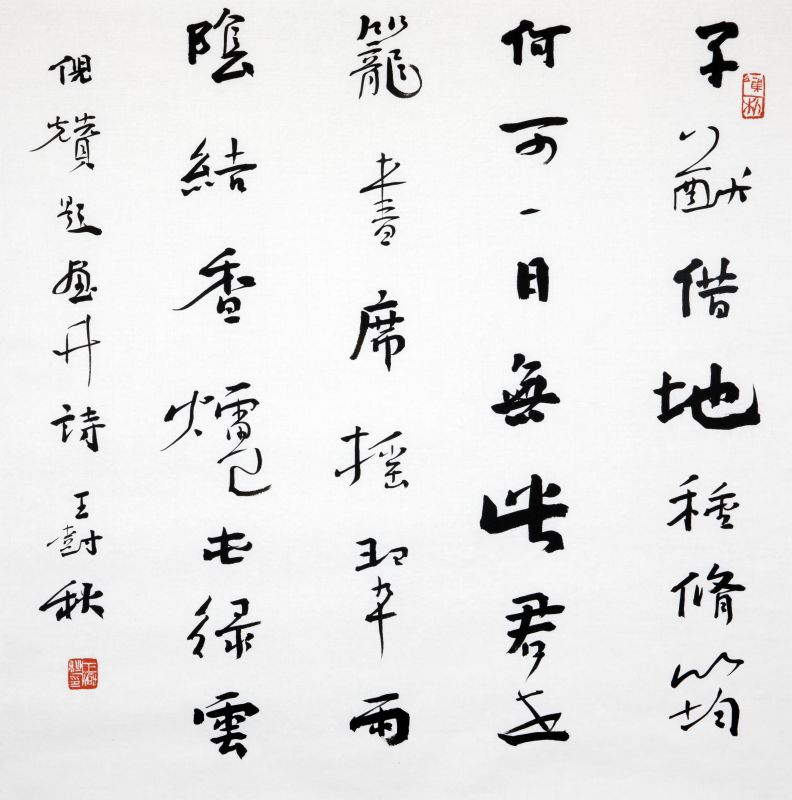 子猷借地種脩筠
何可一日無此君
籠書席搖翠雨
陰結香爐屯綠雲
倪瓚題畫竹詩 王 秋